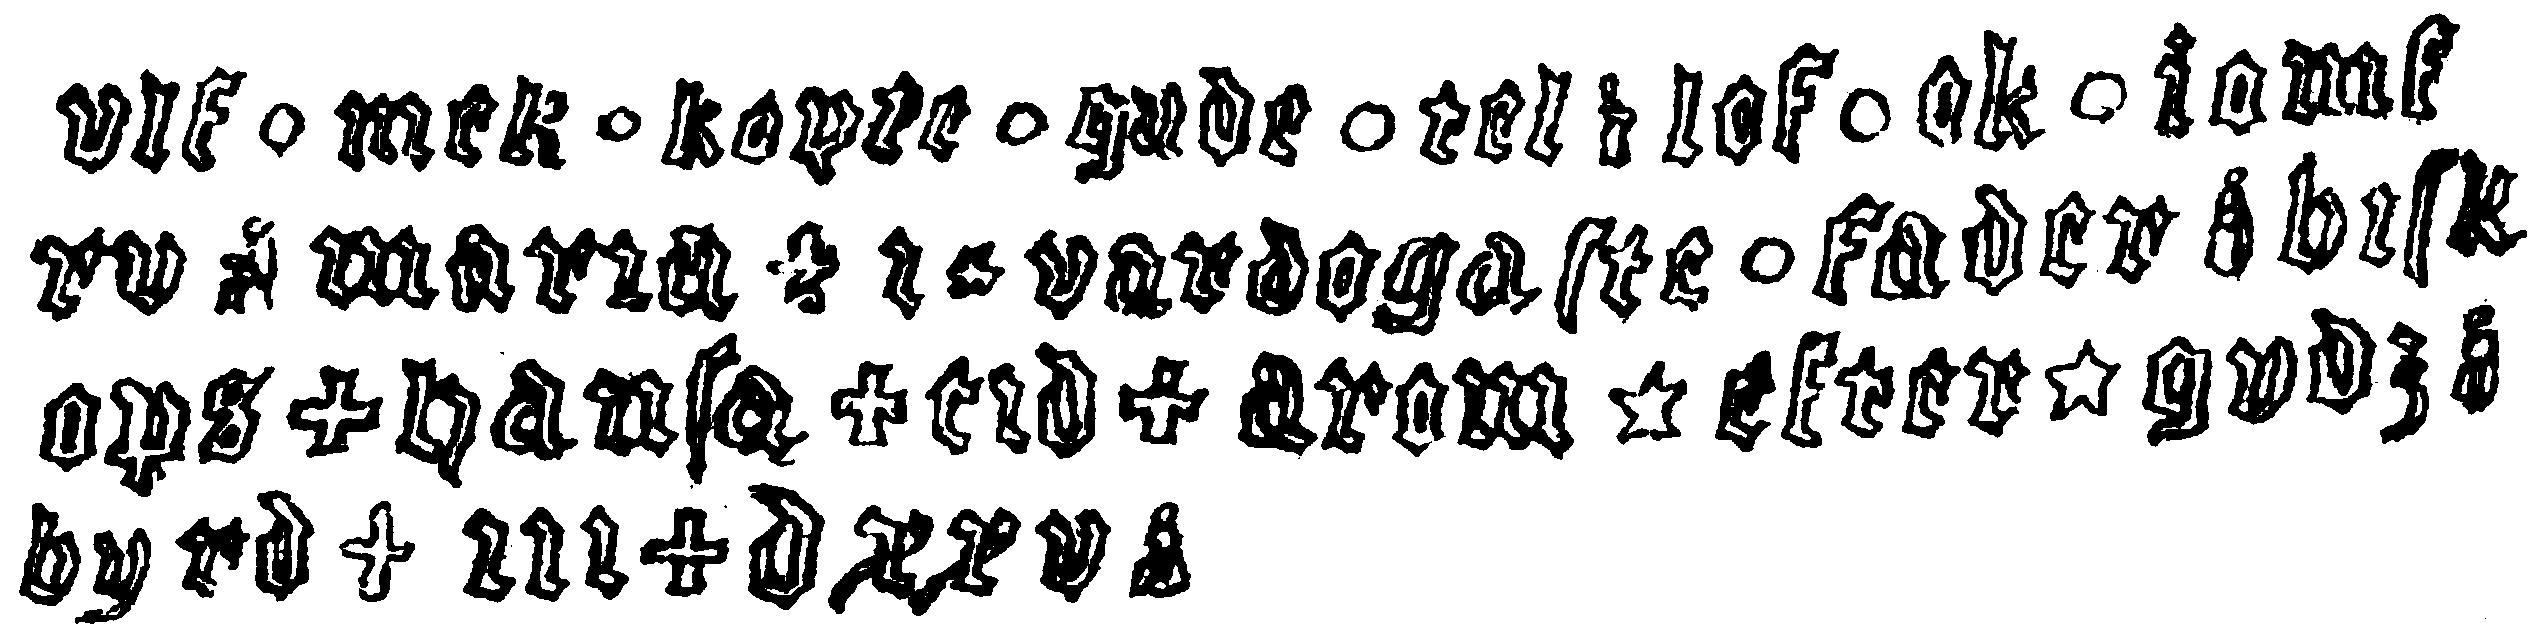 vlf ○ mek ○ kopte ○ gude ○ tel : lof ○ ok ○ iomf
rv maria + i vardogaſte ○ fader biſk
ops + hanſa + tid + arom ☆ efter ☆ gvdz
byrd + iii + d xxv